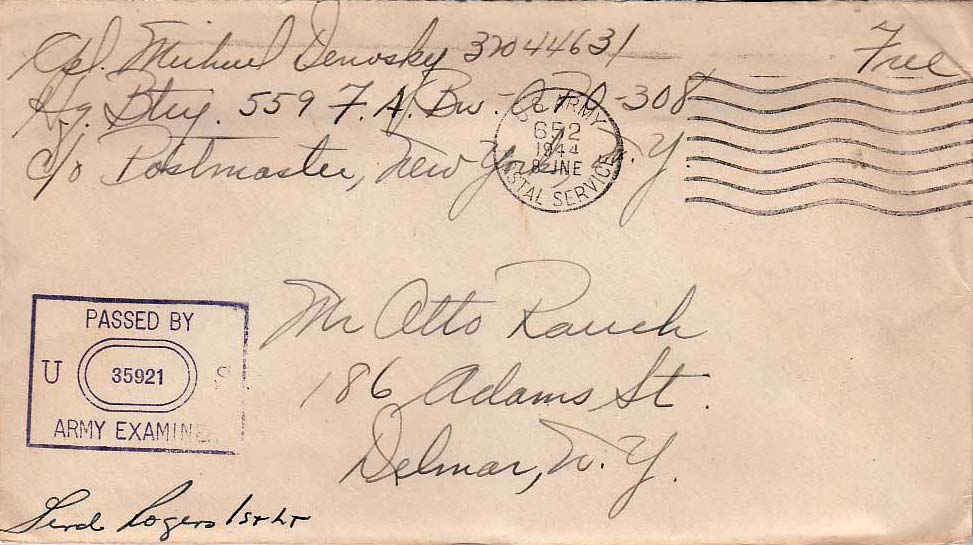 Cpl. Michael Denosky 32044631
Free
Hq. Btry. 559 F.A. Bn. A.P.O-308
c/o Postmaster, New York, N.Y.
U.S. ARMY
652
1944
8 JNE
POSTAL SERVICE
Mr Otto Rauch
186 Adams St.
Delmar, N.Y.
PASSED BY
U 35921 S
ARMY EXAMINE
Rogers 1st Lt